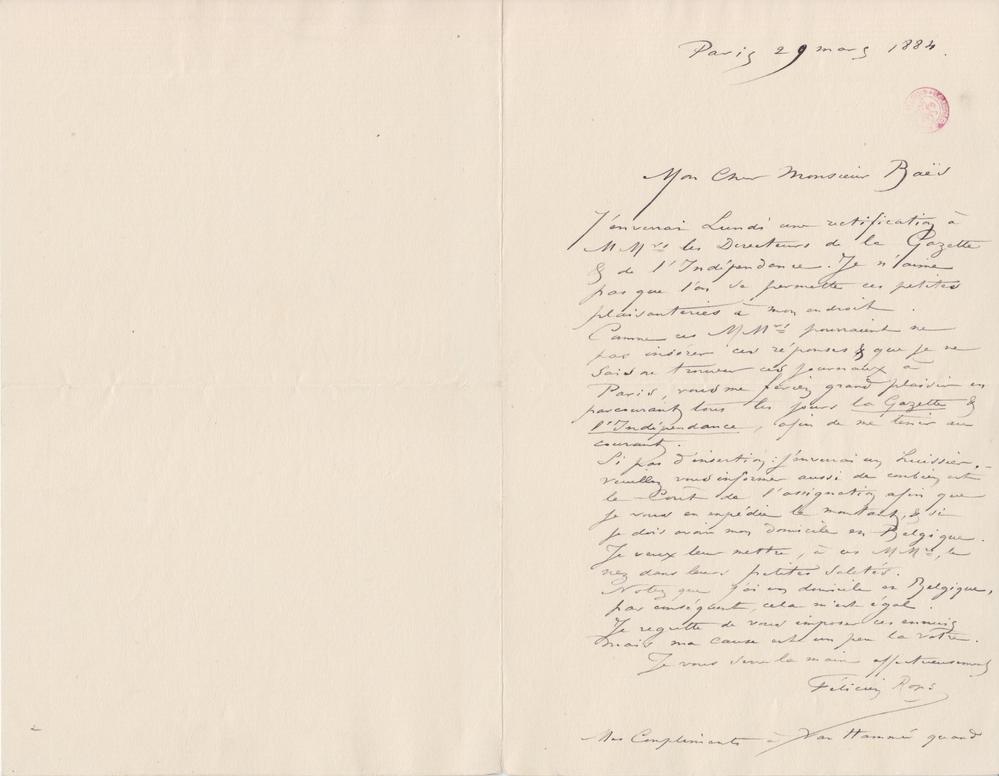 Paris 29 mars 1884.
Mon Cher Monsieur Baës
J'enverrai Lundi une rectification à
MMrs les Directeurs de la Gazette
& de l'Indépendance. Je n'aime
pas que l'on se permette ces petites
plaisanteries à mon endroit.
Comme ces MMrs pourraient ne
pas insérer ces réponses & que je ne
sais où trouver ces journaux à
Paris, vous me feriez grand plaisir en
parcourant tous les jours la Gazette &
l'Indépendance, afin de me tenir au
courant.
Si pas d'insertion: j'enverrai un huissier. -
veuillez vous informer aussi de combien est
le Coût de l'assignation afin que
je vous en expédie le montant, & si
je dois avoir mon domicile en Belgique.
Je veux leur mettre, à ces MMrs, le
nez dans leurs petites saletés.
Notez que j'ai un domicile en Belgique,
par conséquent, cela m'est égal.
Je regrette de vous imposer ces ennuis
mais ma cause est un peu la vôtre.
Je vous serre la main affectueusement
Félicien Rops
Mes Compliments à Van Hammée quand